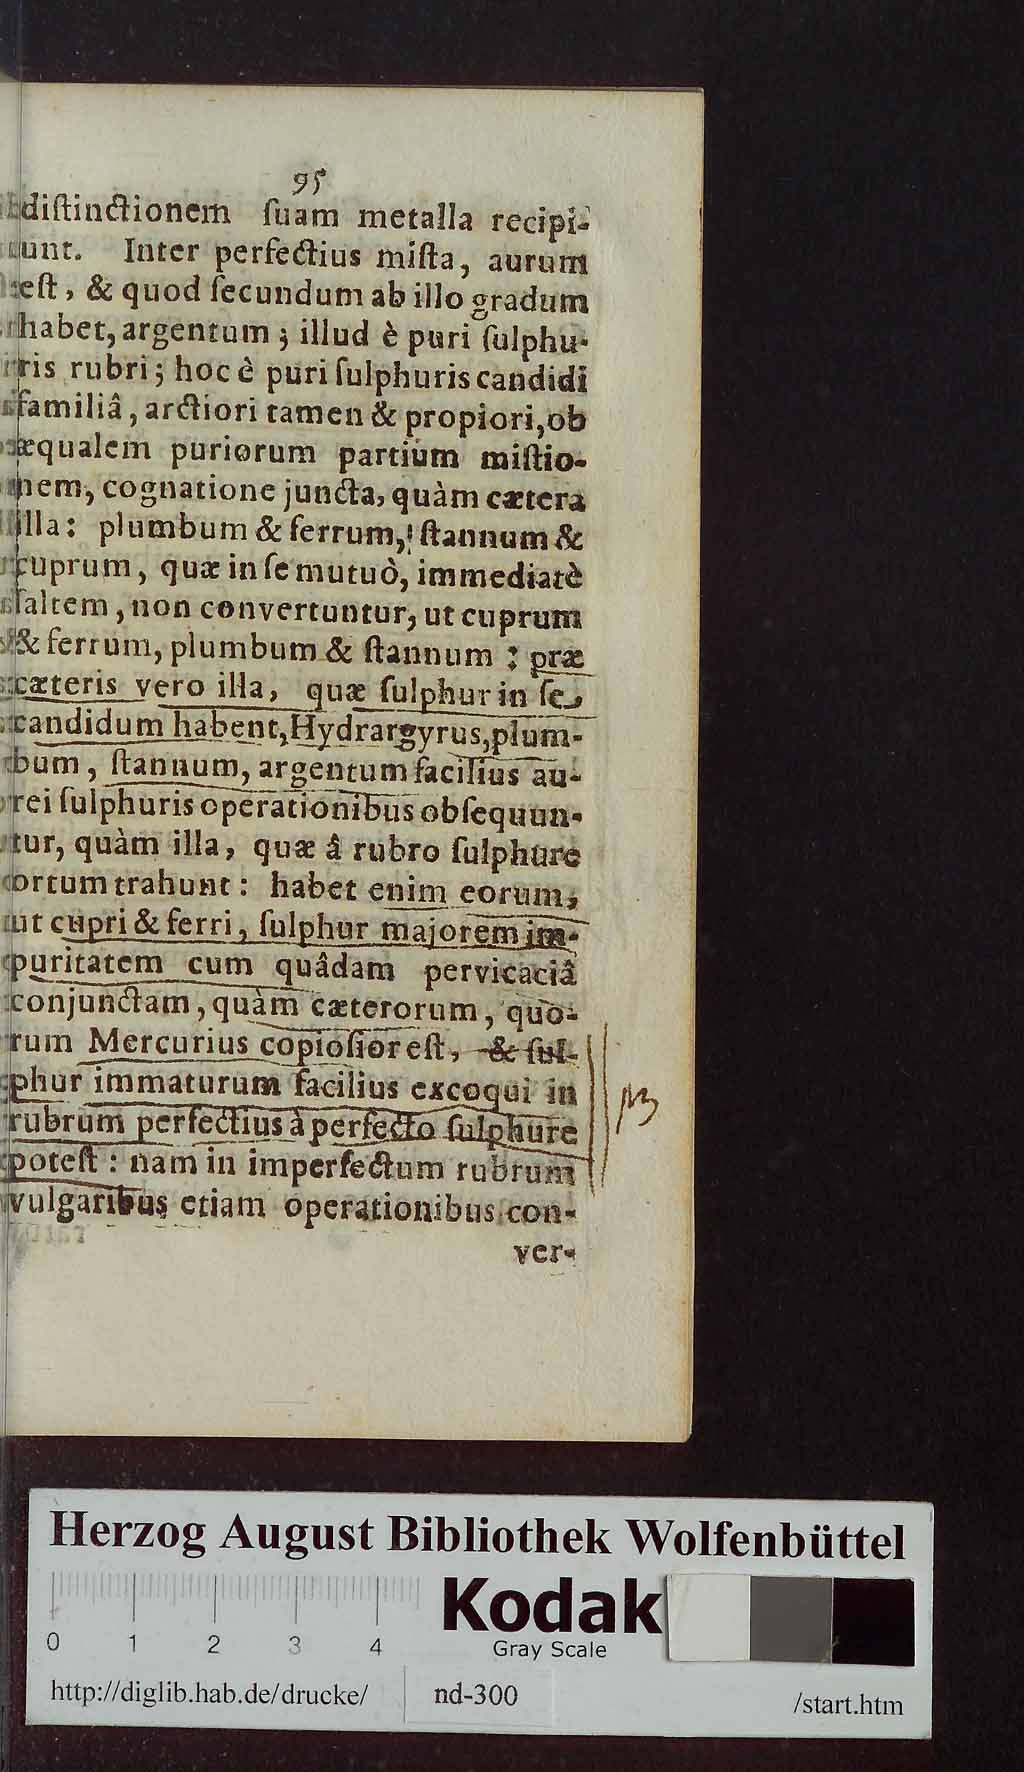 95
diſtinctionem ſuam metalla recipi-
unt. Inter perfectius miſta, aurum
eſt, & quod ſecundum ab illo gradum
habet, argentum; illud è puri ſulphu-
ris rubri; hoc è puri ſulphuris candidi
familiâ, arctiori tamen & propiori, ob
æqualem puriorum partium miſtio-
nem, cognatione juncta, quàm cætera
illa: plumbum & ferrum, ſtannum &
cuprum, quæ in ſe mutuò, immediatè
ſaltem, non convertuntur, ut cuprum
& ferrum, plumbum & ſtannum: præ
cæteris vero illa, quæ ſulphur in ſe
candidum habent, Hydrargyrus, plum-
bum, ſtannum, argentum facilius au-
rei ſulphuris operationibus obſequun-
tur, quàm illa, quæ â rubro ſulphure
ortum trahunt: habet enim eorum,
ut cupri & ferri, ſulphur majorem im-
puritatem cum quâdam pervicaciâ
conjunctam, quàm cæterorum, quo-
rum Mercurius copioſior eſt, & ſul-
phur immaturum facilius excoqui in
rubrum perfectius à perfecto ſulphure
poteſt: nam in imperfectum rubrum
vulgaribus etiam operationibus con-
ver-
NB
Herzog August Bibliothek Wolfenbüttel
Kodak
Gray Scale
0 1 2 3 4
http://diglib.hab.de/drucke/ nd-300 /start.htm